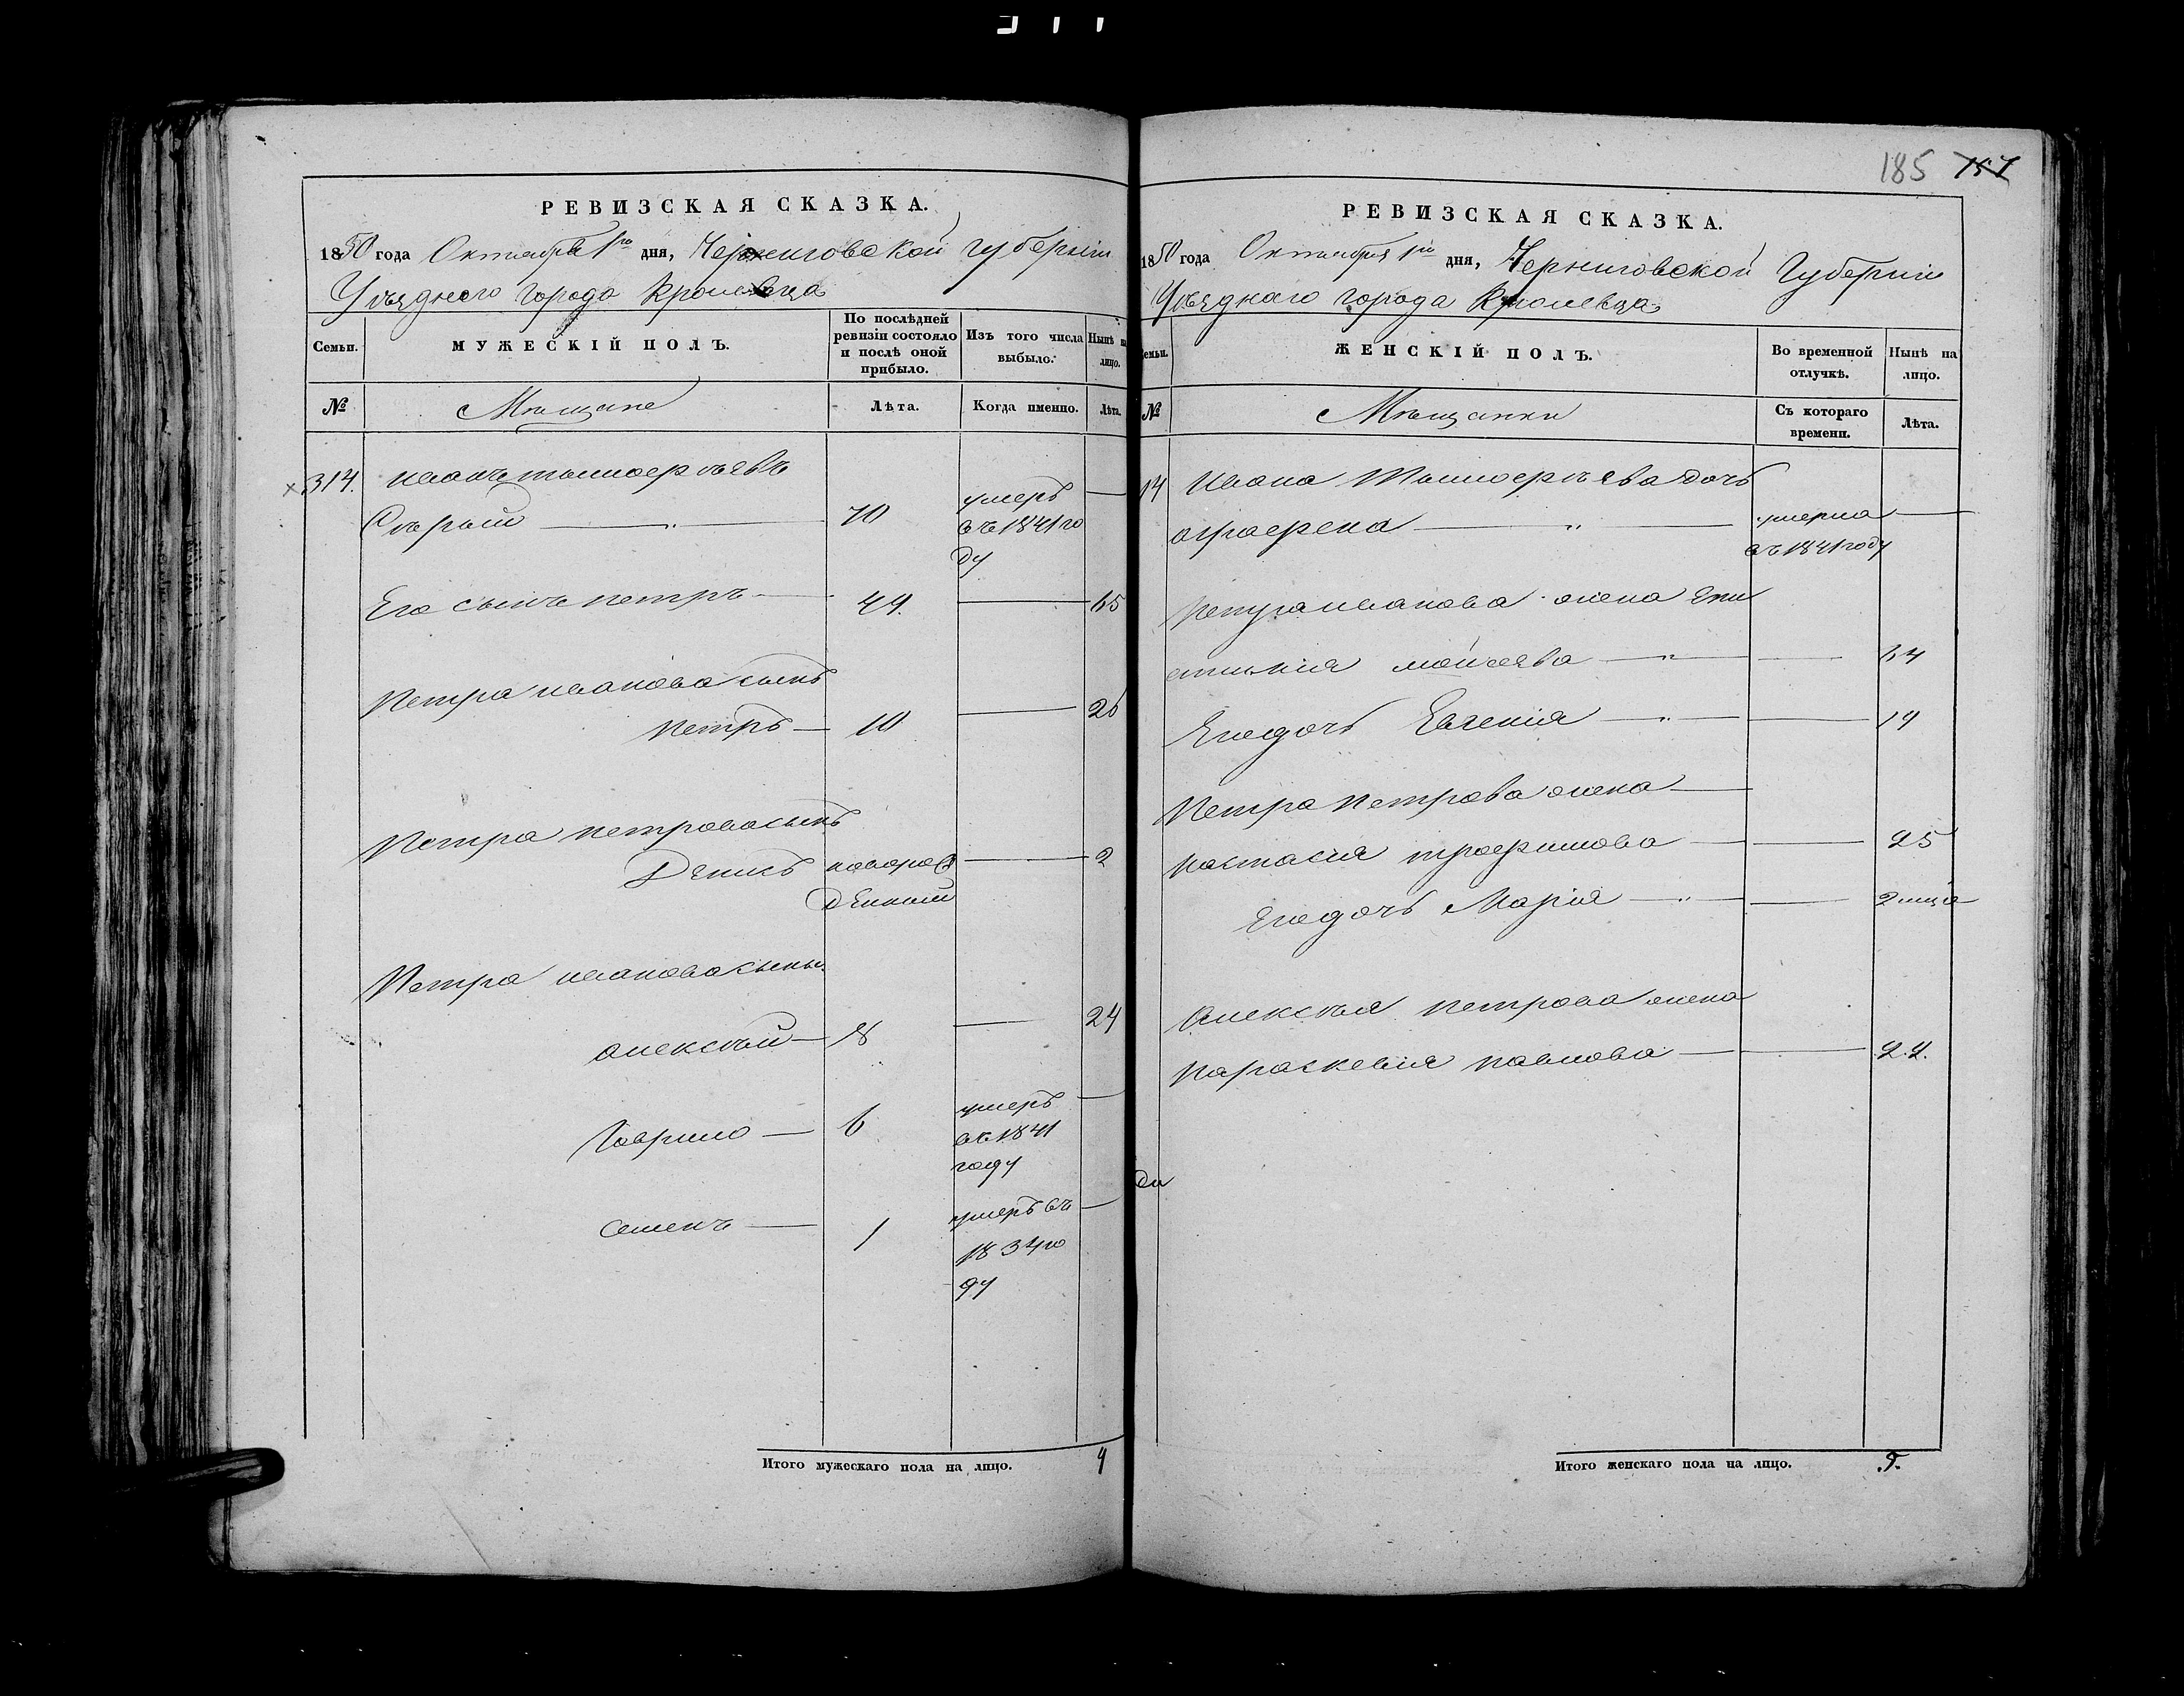 185 157
РЕВИЗСКАЯ СКАЗКА.
1850 года Октября 1го дня, Черниговской губернии
Уѣзднаго города Кролевца
Семьи.
МУЖЕСКІЙ ПОЛЪ.
По послѣдней ревизіи состояло и послѣ оной прибыло.
Изъ того числа выбыло.
Нынѣ на лицо.
№
Мѣщане
Лѣта.
Когда именно.
Лѣта.
314. Иванъ Тимоѳѣевъ
Сѣрый 70 умеръ въ 1841 го
ду
Его сынъ Петръ 49. 65
Петра Иванова сынъ
Петръ 10 26
Петра Петрова сынъ
Денисъ новорож 2
денный
Петра Иванова сыны
Алексѣй 8 24
Гаврило 6 умеръ
въ 1841
году
Семенъ 1 умеръ въ
1834 го
ду
Итого мужескаго пола на лицо. 4
РЕВИЗСКАЯ СКАЗКА.
1850 года Октября 1го дня, Черниговской Губернии
Уѣзднаго города Кролевца
Семьи.
ЖЕНСКІЙ ПОЛЪ.
Во временной отлучкѣ.
Нынѣ на лицо.
№
Мѣщанки
Съ котораго времени.
Лѣта.
14 Ивана дочь
умерла
въ 1841 году
Петра Иванова жена
Моисеева 64
Его дочь Евгения 19
Петра Петрова жена
Настасия Трофимова 25
Его дочь Мария
Алексѣя Петрова жена
Параскевия Павлова 22.
да
Итого женскаго пола на лицо. 5.